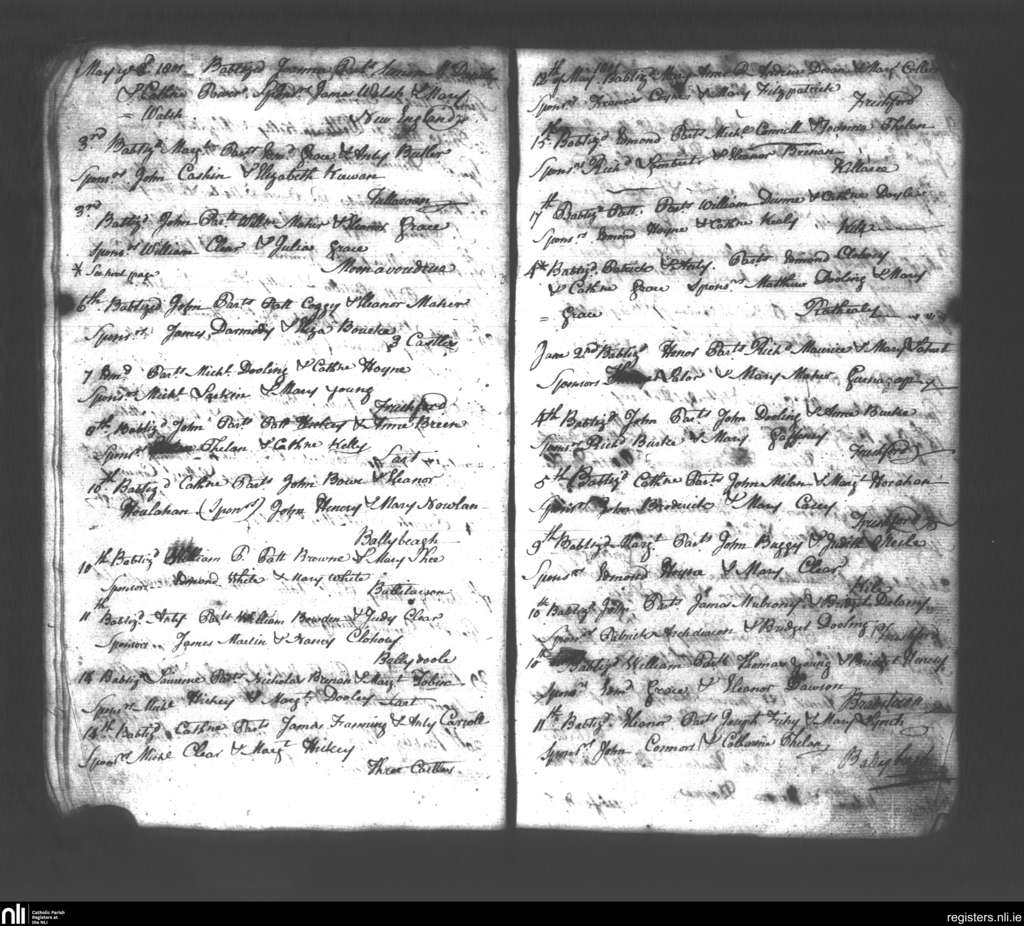 May 1801 Babtizd Joanna Parts
& Cathne Power. Spons. James Walsh & Mary
= Walsh New England
3rd Babtizd Margt Parts Edmd Grace & Ansty Butler
Sponsrs John Cashin & Elizabeth Kirwan
Tallawan
3rd
Babtizd John Parts Willm Maher & Eleanor Grace
Sponsrs William Clear & Julia Grace
* See next page Moonavoudrua
6th Babtizd John Parts Patt Coggy & Eleanor Maher
Sponsrs James Darmody & Eliza Bourke
3 Castles
7 Edmd Parts Michl Dooling & Cathne Hoyne
Sponsrs Michl & Mary Young
Freshford
8th Babtizd John Parts Patt Hickey & Anne Breen
Sponsrs Phelan & Cathne Kelly
Lart
10th Babtizd Cathne Parts John Bowe & Eleanor
Houlahan (Sponsrs) John Henery & Mary Nowlan
Ballybeagh
10th Babtizd William P. Patt Browne & Mary Shea
Sponsors Edmond White & Mary White
11th Babtizd Ansty Parts William Bowden & Judy Clear
Sponsors James Martin & Nancy Clohosy
Ballydoole
12 Babtizd Laurence Parts Nicholas Brenan & Margt Tobin
Sponsrs Michl Hickey & Margt Dooley Lart
14th Babtizd Cathne Parts James Fanning & Ansty Carroll
Sponsrs Michl Clear & Margt Hickey
Three Castles.
12th of May 1801 Babtizd Mary Anne P. Andrew Doran & Mary Cullen
Sponsrs Francis & Mary Fitzpatrick
Freshford
15th Babtizd Edmond Parts Michl Connill & Joanna Phelan
Sponsrs Richd & Eleanor Brenan
Killasee
17th Babtizd Patt. Parts William Dunne & Cathne Doyle
Sponsrs Edmond Hoyne & Cathne Healy Kile
4th Babtizd Patrick & Ansty. Parts Edmond Clohosy
& Cathne Grace Sponsrs Mathew Dooling & Mary
= Grace Rathealy
June 2nd Babtizd Honor Parts Richd Maurice & Mary
Sponsors & Mary Maher
4th Babtizd John Parts John Dooling & Anne Burke
Sponsrs Richd Burke & Mary Gaffney
Freshford
5th Babtizd Cathne Parts John Milan & Margt Horahan
Sponsrs John Broderick & Mary Casey
Freshford
9th Babtizd Margt Parts John Buggy & Judith Steele
Sponsrs Edmond Hoyne & Mary Clear
Kile
10th Babtizd John Parts James Mulrony & Bridget Delany
Sponsrs Patrick Archdeacon & Bridget Dooling Freshford
10th Babtizd William Parts Thomas Young & Bridget
Sponsrs Edmd Grace & Eleanor Dawson
11th Babtizd Eleanor Parts Joseph & Mary Lynch
Sponsrs John Connors & Catharine Phelan
nli
Catholic Parish
Registers at
the NLI
registers.nli.ie